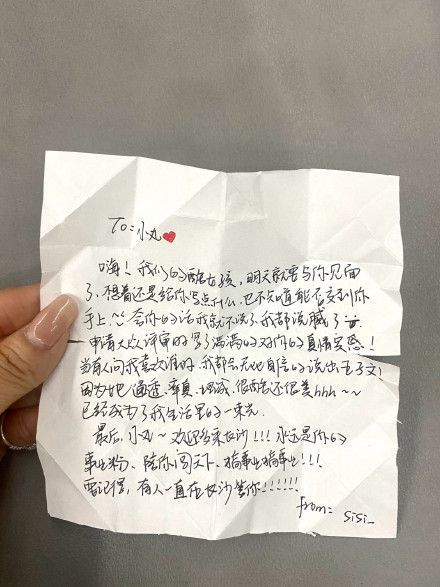 To: 小丸❤
嗨！我们的酷女孩，明天就要与你见面
了，想着还是给你写点什么，也不知道能不能交到你
手上^^ 夸你的话我就不说了，我都说腻了
申请大效评审时写了满满的对你的真情实感！
当有人问我喜欢谁时，我都会无比自信的说出
因为她通透、率真、坦诚、很酷还很美hhh~~
已经成为了我生活里的一束光
最后，小丸~欢迎来长沙!!! 永远是你的
事业粉、陪你闯天下、搞事业搞事业!!!
要记得，有人一直在长沙等你!!!!!!
from: SiSi_